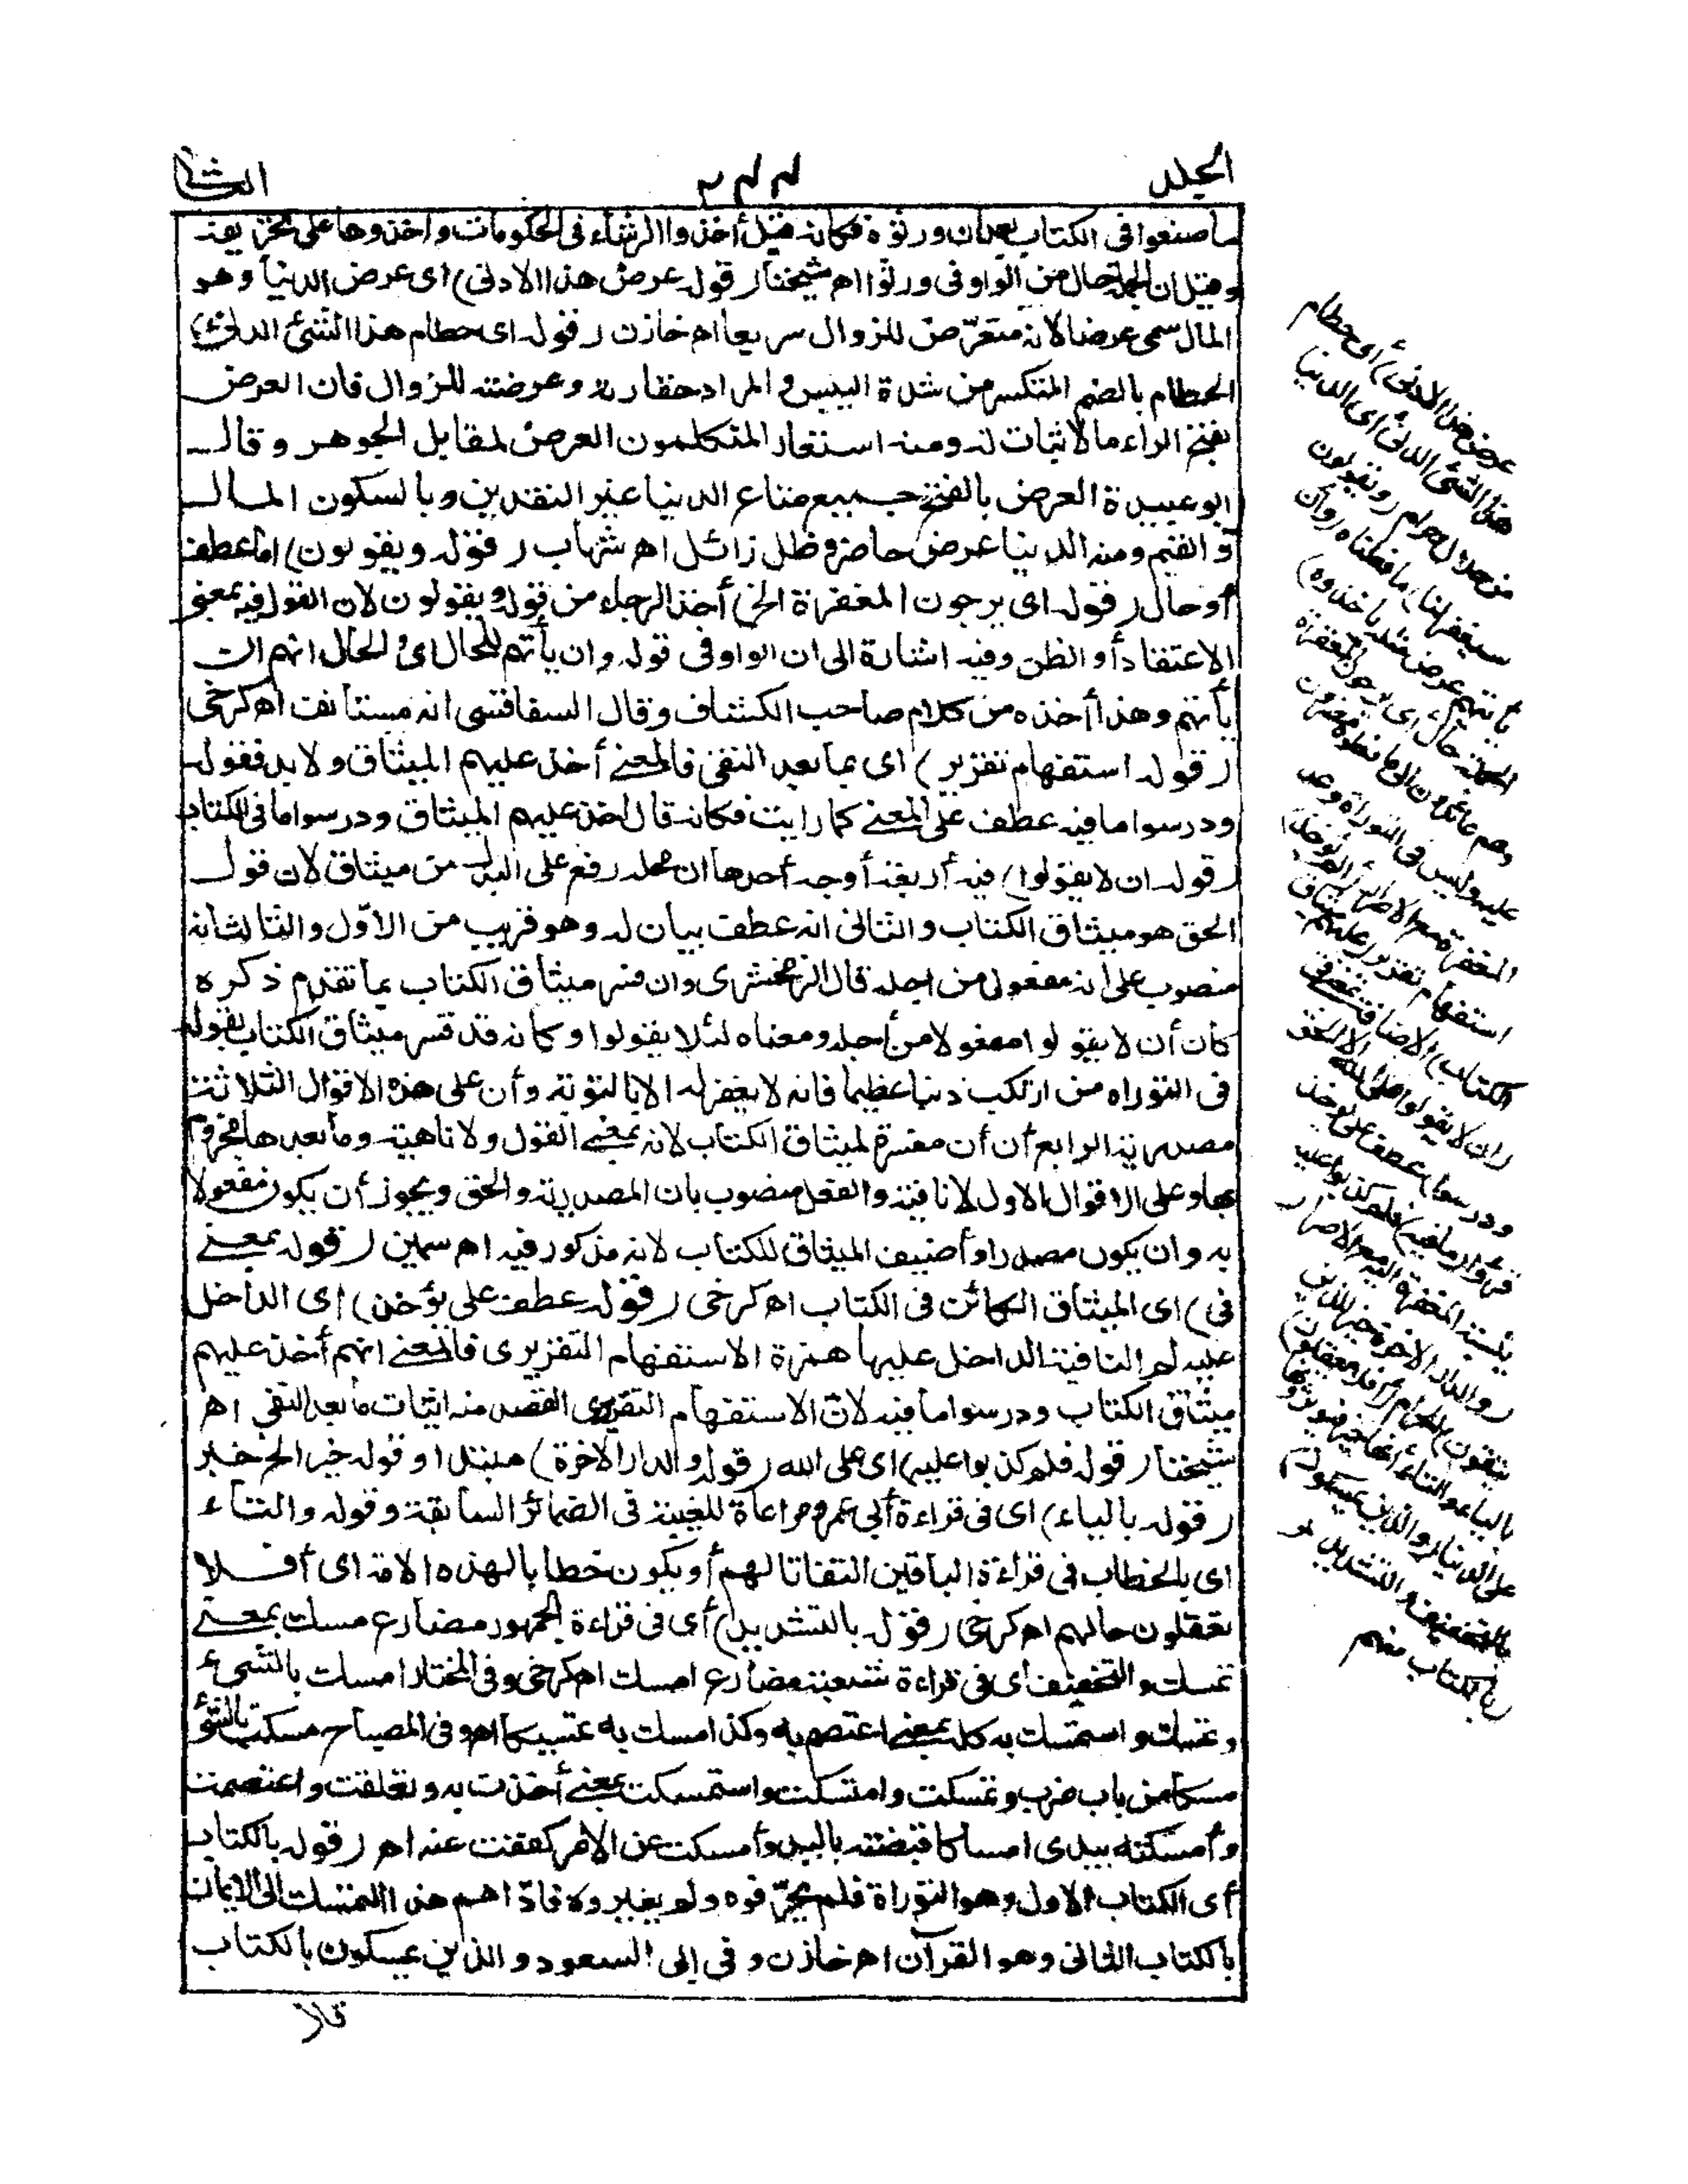 الجلد
٢٤٤
الثانى
ما صنعوا فى الكتاب بعد ان ورثوه فكانه قيل أخذوا الرشاء فى الحكومات واخذوها على تحريفه
وقيل ان الجملة حال من الواو فى ورثوا اه شيخنا (قوله عرض هذا الادنى) اى عرض الدنيا وهو
المال سمى عرضا لانه متعرّض للزوال سريعا اه خازن (قوله اى حطام هذا الشئ الدنئ)
الحطام بالضم المتكسر من شدة اليبس والمراد حقارته وعرضته للزوال فان العرض
بفتح الراء ما لا ثبات له ومنه استعار المتكلمون العرض لمقابل الجوهر وقال
ابو عبيدة العرض بالفتح جميع متاع الدنيا غير النقدين وبالسكون المال
والقيم ومنه الدنيا عرض حاضر وظل زائل اه شهاب (قوله ويقولون) اما عطف
أو حال (قوله اى يرجون المغفرة الخ) أخذ الرجاء من قوله ويقولون لان القول فيه بمعنى
الاعتقاد أو الظن وفيه اشارة الى ان الواو فى قوله وان يأتهم للحال اى والحال انهم ان
يأتهم وهذا أخذه من كلام صاحب الكشاف وقال السفاقسى انه مستأنف اه كرخى
(قوله استفهام تقرير) اى بما بعد النفى فالمعنى أخذ عليهم الميثاق ولا بد فقوله
ودرسوا ما فيه عطف على المعنى كما رايت فكانه قال اخذ عليهم الميثاق ودرسوا ما فى الكتاب
(قوله ان لا يقولوا) فيه أربعة أوجه أحدها ان محله رفع على البدل من ميثاق لان قول
الحق هو ميثاق الكتاب والثانى انه عطف بيان له وهو قريب من الاوّل والثالث انه
منصوب على انه مفعول من اجله قال الزمخشرى وان فسر ميثاق الكتاب بما تقدم ذكره
كان أن لا يقولوا مفعولا من أجله ومعناه لئلا يقولوا وكانه قد فسر ميثاق الكتاب بقوله
فى التوراه من ارتكب ذنبا عظيما فانه لا يغفر له الا بالتوبة وأن على هذه الاقوال الثلاثة
مصدرية الرابع أن أن مفسرة لميثاق الكتاب لانه بمعنى القول ولا ناهية وما بعدها مجزوم
بها وعلى الاقوال الاول لا نافية والفعل منصوب بان المصدرية والحق ويجوز أن يكون مفعولا
به وان يكون مصدرا وأضيف الميثاق للكتاب لانه مذكور فيه اه سمين (قوله بمعنى
فى) اى الميثاق الكائن فى الكتاب اه كرخى (قوله عطف على يؤخذ) اى الداخل
عليه لم النافية الداخل عليها همزة الاستفهام التقريرى فالمعنى انهم أخذ عليهم
ميثاق الكتاب ودرسوا ما فيه لانّ الاستفهام التقريرى القصد منه اثبات ما بعد النفى اه
شيخنا (قوله فلم كذبوا عليه) اى على الله (قوله والدار الاخرة) مبتدا وقوله خير الخ خبر
(قوله بالياء) اى فى قراءة أبى عمرو مراعاة للغيبة فى الضمائر السابقة وقوله والتاء
اى بالخطاب فى قراءة الباقين التفاتا لهم أو يكون خطابا لهذه الامة اى أفلا
تعقلون حالهم اه كرخى (قوله بالتشديد) أى فى قراءة الجمهور مضارع مسك بمعنى
تمسك والتخفيف أى فى قراءة شعبة مضارع امسك اه كرخى وفى المختار امسك بالشئ
وتمسك واستمسك به كله بمعنى اعتصم به وكذا امسك به تمسيكا اه وفى المصباح مسكت بالشئ
مسكا من باب ضرب وتمسكت وامتسكت واستمسكت بمعنى أخذت به وتعلقت واعتصمت
وأمسكته بيدى امساكا قبضته باليد وأمسكت عن الامر كففت عنه اه (قوله بالكتاب)
أى الكتاب الاول وهو التوراة فلم يحرّفوه ولم يغيروه فادّاهم هذا التمسك الى الايمان
بالكتاب الثانى وهو القرآن اه خازن وفى ابى السعود والذين يمسكون بالكتاب
قلا
عرض هذا الادنى) اى حطام
هذا الشئ الدنئ اى الدنيا
من حلال وحرام (ويقولون
سيغفر لنا) ما فعلناه (وان
يأتهم عرض مثله ياخذوه)
الجملة حال اى يرجون المغفرة
وهم عائدون الى ما فعلوه مصرون
عليه وليس فى التوراة وعد
المغفرة مع الاصرار (ألم يؤخذ)
استفهام تقرير (عليهم ميثاق
الكتاب) الاضافة بمعنى فى
(ان لا يقولوا على الله الا الحق
ودرسوا) عطف على يؤخذ
قرؤا (ما فيه) فلم كذبوا عليه
بنسبة المغفرة اليه مع الاصرار
(والدار الاخرة خير للذين
يتقون) الحرام (أفلا يعقلون)
بالياء والتاء أنها خير فيؤثرونها
على الدنيا (والذين يمسكون)
بالتخفيف والتشديد
(بالكتاب) منهم